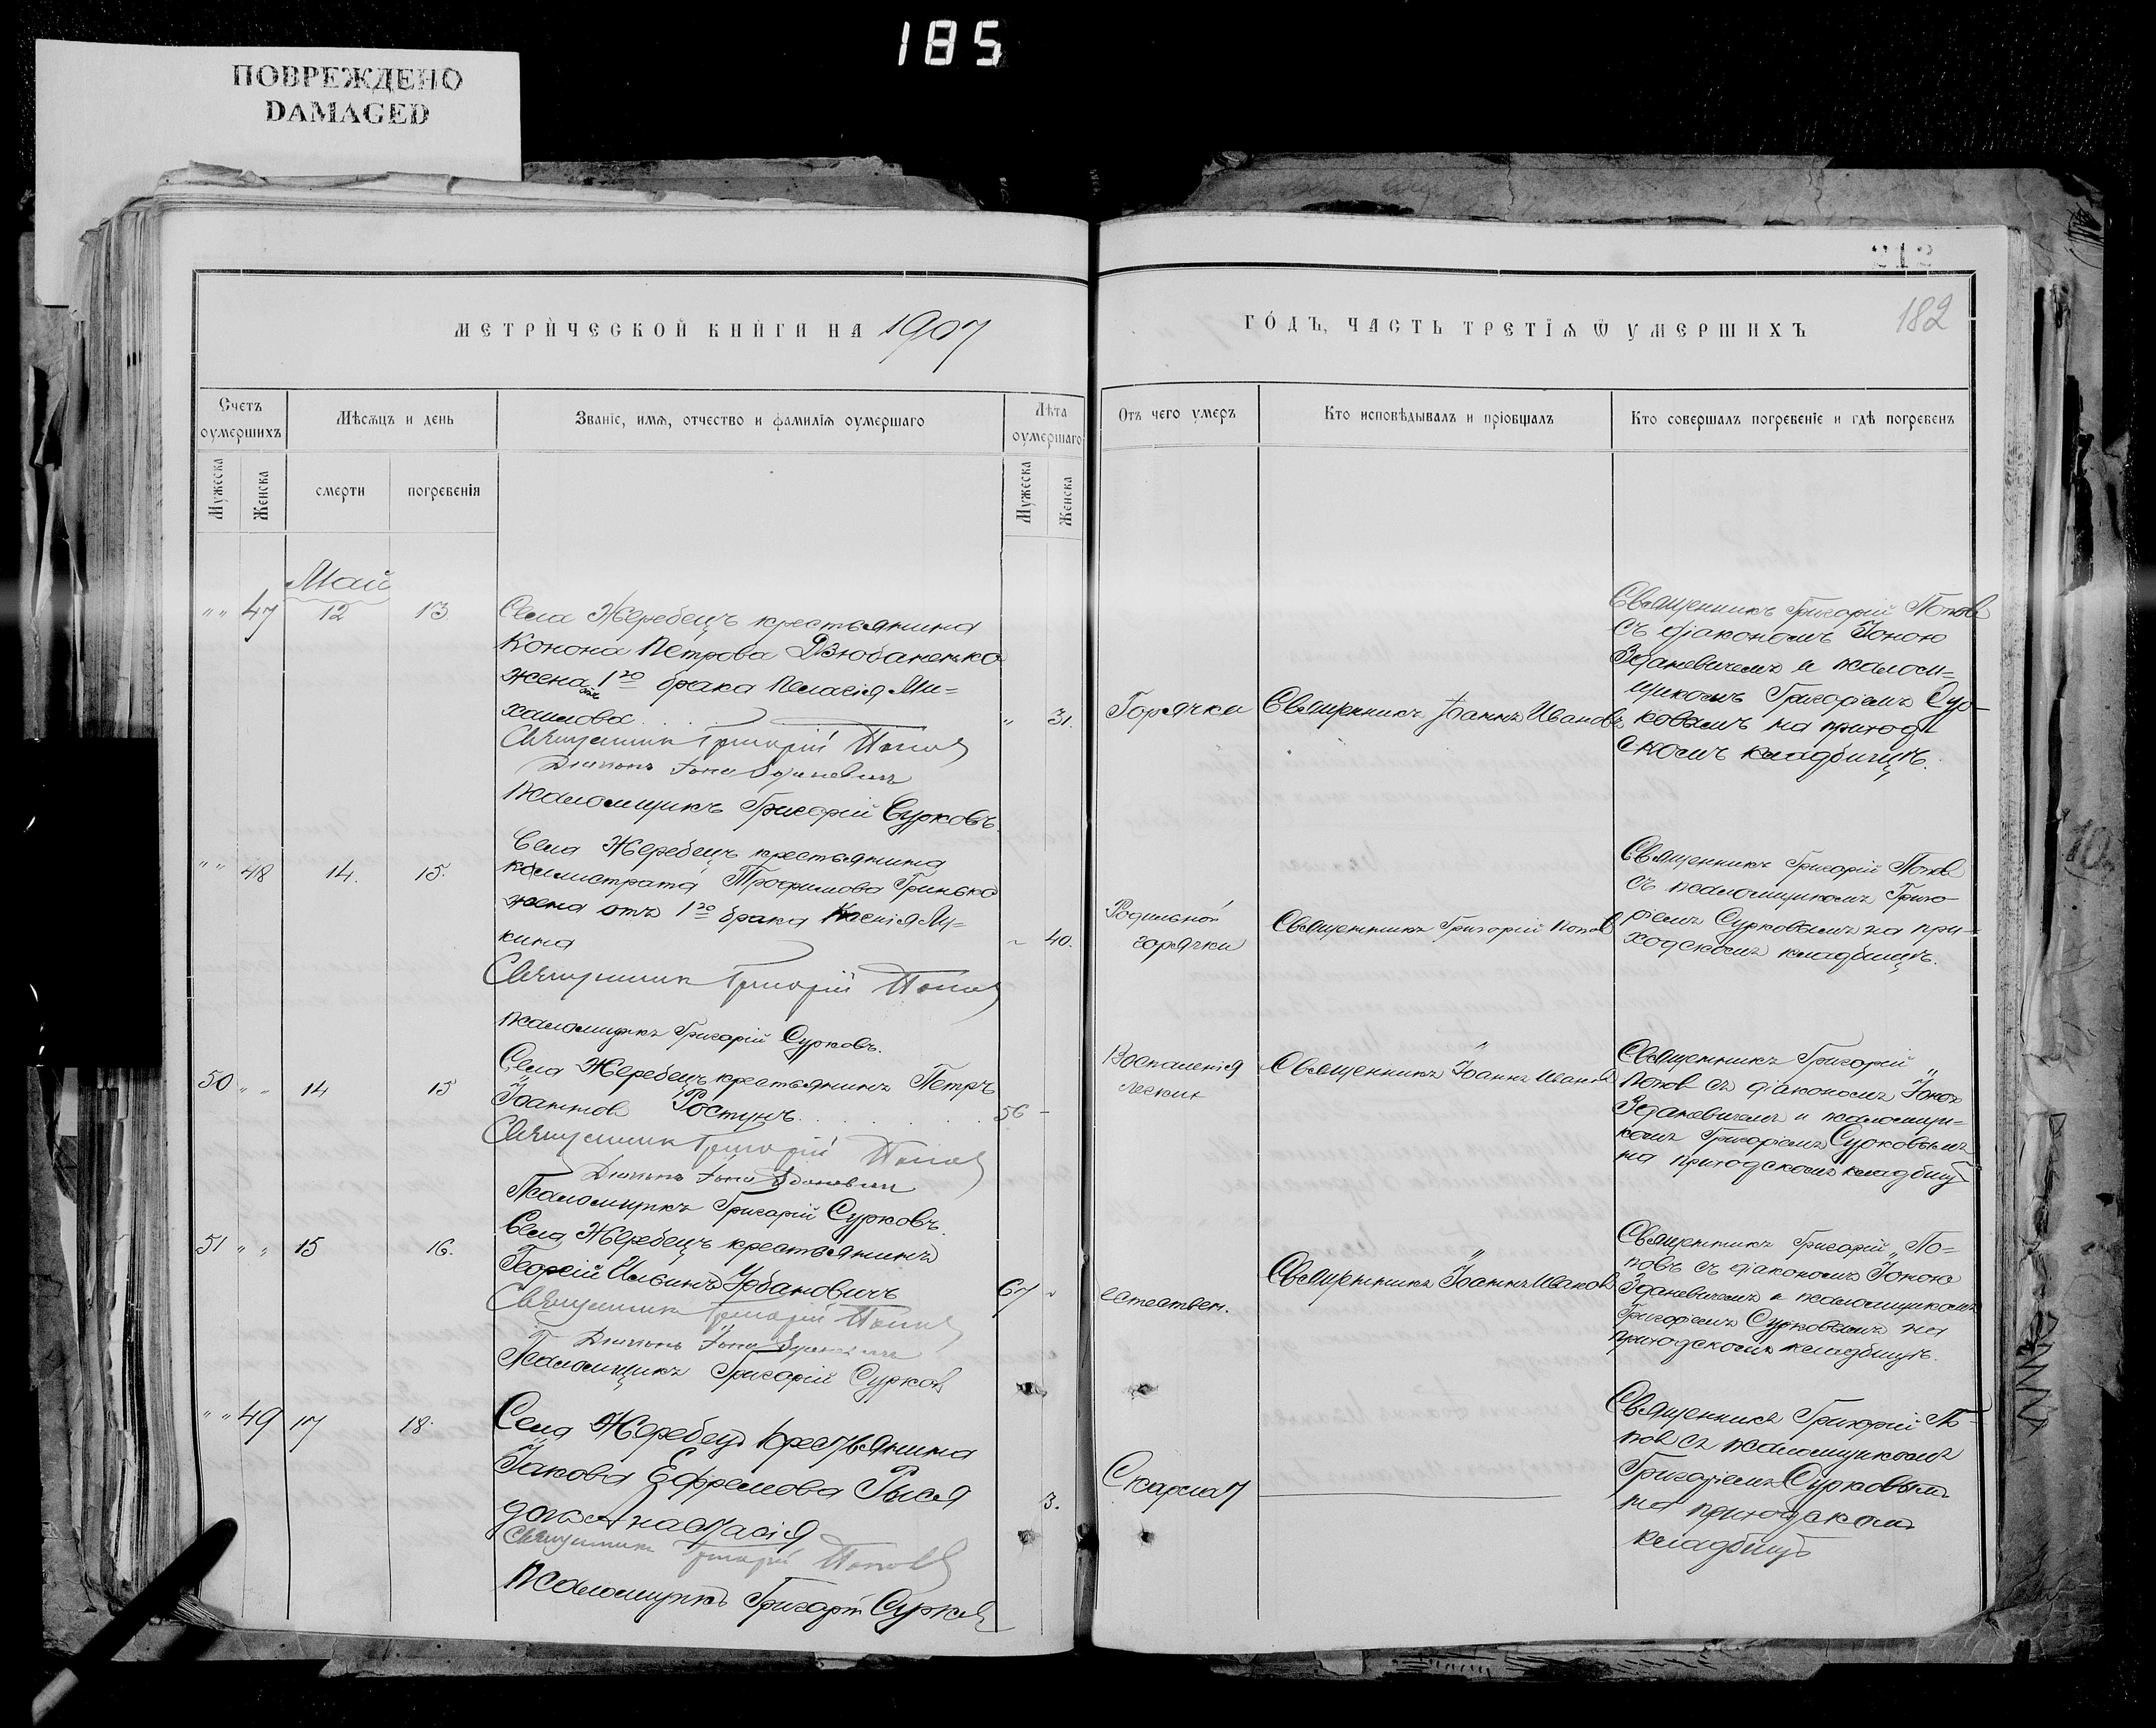 185
ПОВРЕЖДЕНО
DAMAGED
212
182
МЕТРИЧЕСКОЙ КНИГИ НА 1907
ГОДЪ, ЧАСТЬ ТРЕТІѦ Ѿ УМЕРШИХЪ
Счетъ оумершихъ
Мѣсѧцъ и день
Званіе, имѧ, отчество и фамиліѧ оумершаго
Лѣта оумершаго
Отъ чего умеръ
Кто исповѣдывалъ и пріобщалъ
Кто совершалъ погребеніе и гдѣ погребенъ
Мужеска
Женска
смерти
погребенія
Мужеска
Женска
Май
" " 47 12 13
Села Жеребецъ крестьянина
Конона Петрова Дзюбаненко
жена отъ 1го брака Пелагія Ми-
хаилова
" 31.
Священникъ Григорій Попов
Діаконъ Іона Зданевичъ
Псаломщикъ Григорій Сурковъ
Горячка
Священникъ Іоаннъ Ивановъ
Священникъ Григорій Попов
съ діакономъ Іоною
Зданевичемъ и псалом-
щикомъ Григоріемъ Сур-
ковымъ на приход
скомъ кладбищѣ.
" " 48 14. 15.
Села Жеребецъ крестьянина
Каллистрата Трофимова Гринько
жена отъ 1го брака Ксенія Лу-
кина
40.
Священникъ Григорій Попов
Псаломщикъ Григорій Сурковъ.
Родильной
горячки
Священникъ Григорій Попов
Священникъ Григорій Попов
съ псаломщикомъ Григо-
ріемъ Сурковымъ на при-
ходскомъ кладбищѣ.
50 " " 14 15
Села Жеребецъ крестьянинъ Петръ
Іоаннов Ростунъ
56 -
Священникъ Григорій Попов
Діаконъ Іона Зданевич
Псаломщикъ Григорій Сурковъ
Воспаленія
легкихъ
Священникъ Іоаннъ Иванов
Священникъ Григорій
Попов съ діакономъ Іоною
Зданевичемъ и псаломщи-
комъ Григоріемъ Сурковымъ
на приходскомъ кладбищѣ
51 " " 15 16.
Села Жеребецъ крестьянинъ
Георгій Ильинъ Урбановичъ
67 "
Священникъ Григорій Попов
Діаконъ Іона Зданевичъ
Псаломщикъ Григорій Сурков
естествен.
Священникъ Іоаннъ Иванов
Священникъ Григорій По-
повъ съ діакономъ Іоною
Зданевичемъ и псаломщикомъ
Григоріемъ Сурковымъ на
приходскомъ кладбищѣ.
" " 49 17 18.
Села Жеребецъ крестьянина
Іакова Ефремова Рыся
дочь Анастасія
3.
Священникъ Григорій Попов
Псаломщикъ Григорій Сурков
Скарлат
Священник Григорій По-
пов съ псаломщикомъ
Григоріемъ Сурковым
на приходском
кладбищѣ